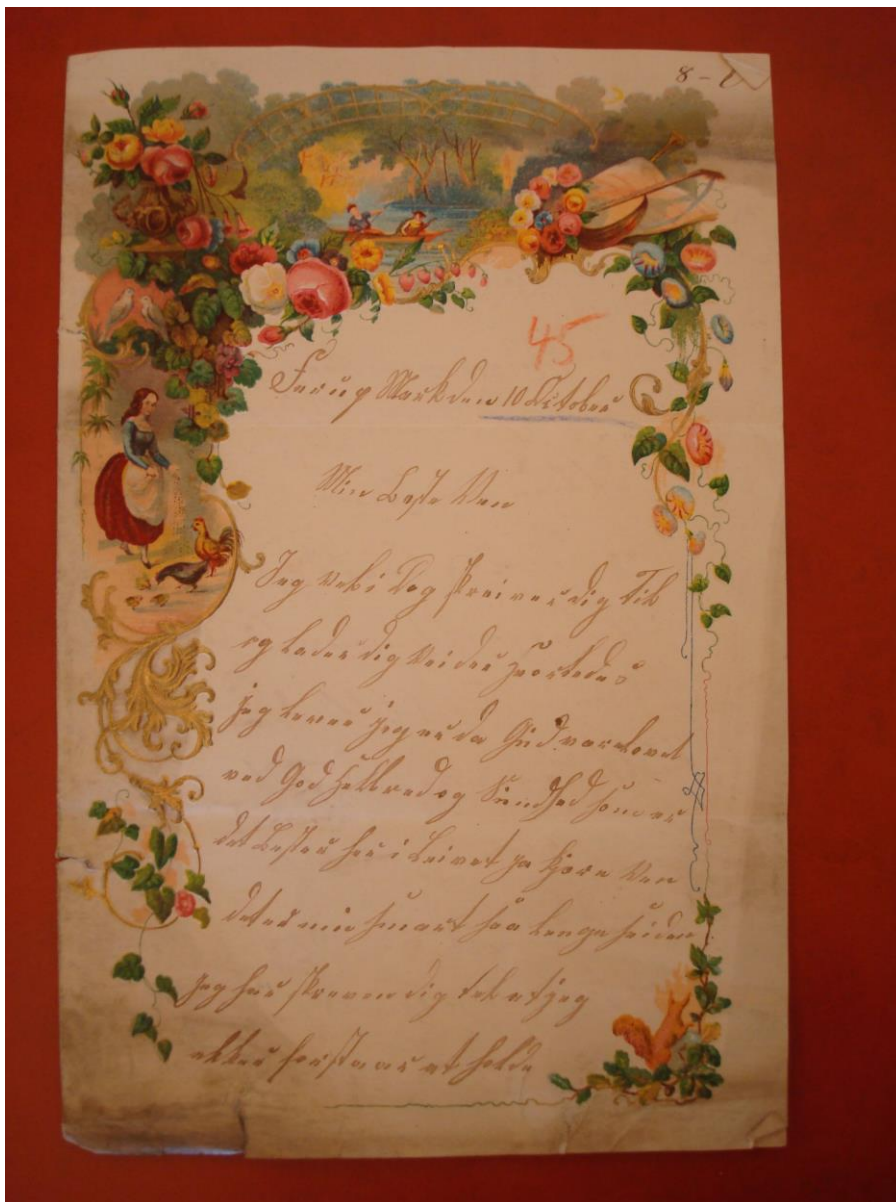 8 -
45
Farup Mark den 10 October
Min Beste Ven
Jeg vel i Dag skreiver dig til
og lader dig Veider hvorledes
jeg lever jeg er da Gud være lovet
ved God Helbred og Sundhed som er
det Bester her i Leivet ja kjære Ven
det er nu snart saa lenge seiden
jeg har skreven dig tel at jeg
ekker forstaar at holde